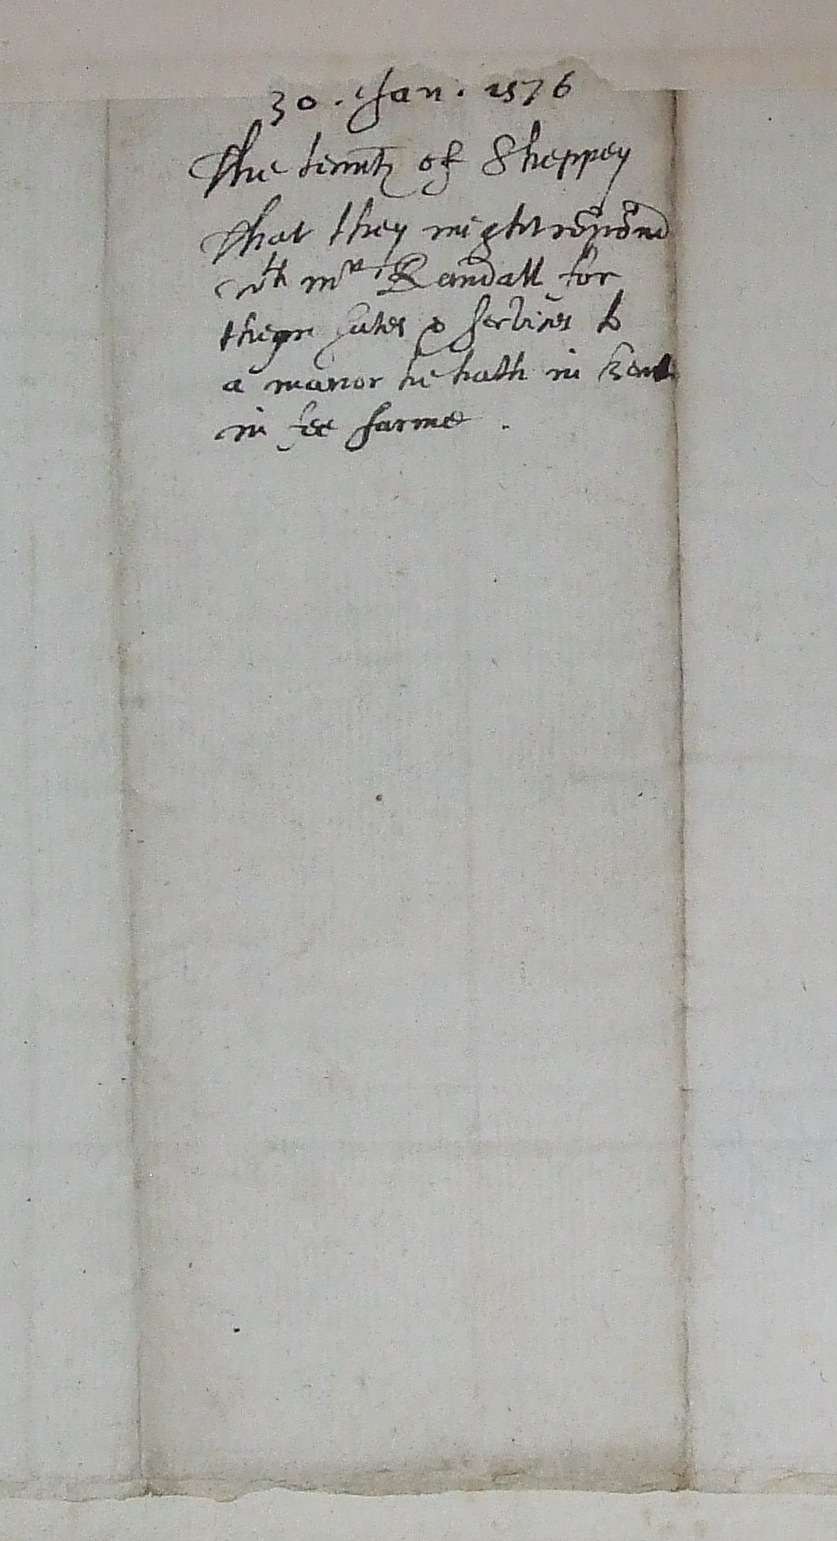 30. Jan. 1576
The tenntꝭ of Sheppey
that they might compound
wth mr Randall for
theyr sutes & servises to
a manor he hath in Kent
in fee farme.